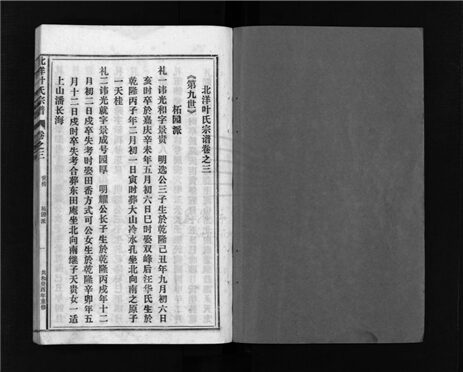 北洋叶氏宗谱卷之三
柘园派
《第九世》
礼一讳光和字景贵 明选公三子生於乾隆己丑年九月初六日
亥时卒於嘉庆辛未年五月初六日巳时娶双峰后汪华氏生於
乾隆丙子年二月初一日寅时葬大山冷水孔坐北向南之原子
一天桂
礼二讳光就字景成号园厚 明耀公长子生於乾隆丙戌年十二
月初二日戌时卒失考时娶田番方式可公女生於乾隆辛卯年五
月十二日戌时卒失考合葬东田庵坐北向南继子天贵女一适
上山潘长海
北洋叶氏宗谱
卷之三
柘园派
一